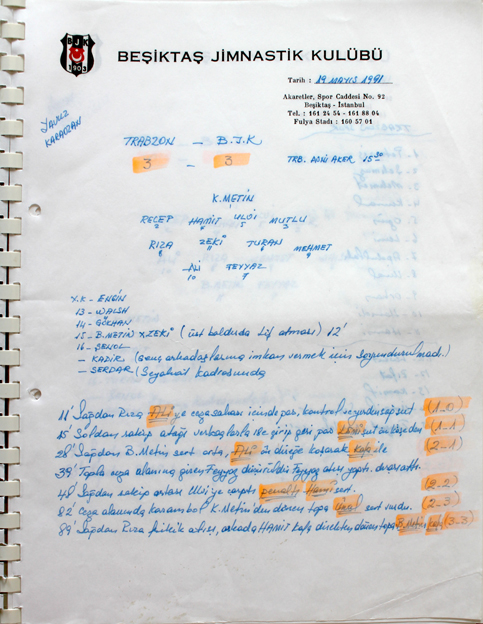 BJK
1903
BEŞİKTAŞ JİMNASTİK KULÜBÜ
Tarih : 19 MAYIS 1991
Akaretler, Spor Caddesi No. 92
Beşiktaş - İstanbul
Tel. : 161 24 54 - 161 88 04
Fulya Stadı : 160 57 01
YAVUZ
KARAOZAN
TRABZON - B.J.K
3 - 3
TRB. AVNİ AKER 15 30
K.METİN
RECEP HAMİT ULVİ MUTLU
2 4 5 3
RIZA ZEKİ TURAN MEHMET
6 11 8
ALİ FEYYAZ
10 9
Y.K - ENGİN
13 - WALSH
14 - GÖKHAN
15 - B.METİN X ZEKİ (üst baldırda lif atması) 12'
16 - ŞENOL
- KADİR (Genç arkadaşlarına imkan vermek için soyundurulmadı.)
- SERDAR (Seyahat kadrosunda
11' Sağdan Rıza Ali'ye ceza sahası içinde pas, kontrol ve şut (1-0)
15' Soldan rakip atağı ile girip geri pas şut (1-1)
28' Sağdan B.Metin sert orta, Ali ön direğe koşarak kafa ile (2-1)
39' Topla ceza alanına giren Feyyaz düşürüldü Feyyaz atışı yaptı.
48' Sağdan rakip ortası Ulvi'ye çarptı penaltı Hami sert. (2-2)
82' Ceza alanında karambol K.Metin'den dönen topa Ünal sert vurdu. (2-3)
89' Sağdan Rıza frikik atışı, arkada HAMİT kafa direkten dönen topa B.Metin kafa (3-3)